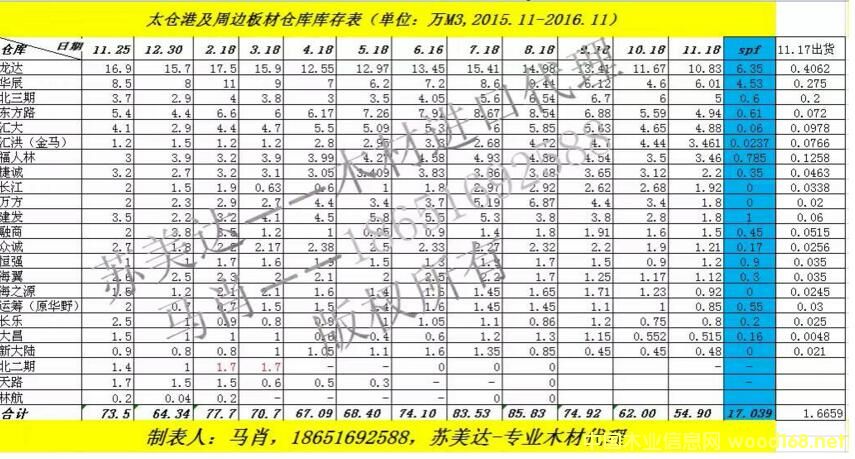 太仓港及周边板材仓库库存表（单位：万M3,2015.11-2016.11）
仓库 日期 11.25 12.30 2.18 3.18 4.18 5.18 6.16 7.18 8.18 9.12 10.18 11.18 spf 11.17出货
龙达 16.9 15.7 17.5 15.9 12.55 12.97 13.45 15.41 14.98 13.41 11.67 10.83 6.35 0.4062
华辰 8.5 8 11 9 7 6.2 7.2 8.6 9.44 6.12 4.6 6.01 4.53 0.275
北三期 3.7 2.9 4 3.8 3 3.5 4.05 5.6 5.54 6.7 6 5 0.6 0.2
东方路 5.4 4.4 6.6 6 6.17 7.26 7.91 8.67 8.54 6.88 5.59 4.94 0.61 0.072
汇大 4.1 2.9 4.4 4.7 5.5 5.09 5.3 6 5.85 5.63 4.65 4.88 0.06 0.0978
汇洪（金马） 1.2 1.5 1.2 1.2 2.8 2.95 3.3 2.68 4.72 4.7 4.44 3.461 0.0237 0.0766
福人林 3 3.9 3.2 3.9 3.99 4.27 4.58 4.93 4.86 4.54 3.5 3.46 0.785 0.1258
捷诚 3.2 2.7 3.2 3.1 3.05 3.409 3.83 3.86 3.68 3.65 3.12 2.2 0.35 0.0463
长江 2 1.5 1.9 0.63 0.6 1 1.8 2.97 2.92 2.62 2.68 1.92 0 0.0338
万方 2 2.3 2.9 2.7 4.4 3.4 3.7 5.19 6.87 4.4 3.4 1.8 0 0.02
建发 3.5 2.2 3.2 4.1 4.5 5.8 5.5 5.3 3.8 3.8 2.8 1.8 1 0.06
融商 2 3.8 3.5 1.2 1 0.95 0.9 1.4 1.8 1.91 1.6 1.5 0.45 0.0515
众诚 2.7 1.8 2.2 2.17 2.38 2.5 2.33 2.27 2.32 2.2 1.9 1.21 0.17 0.0256
恒强 1 1 1.7 1.6 1.3 1.5 1.3 1.1 1.7 1.5 1.2 0.9 0.9 0.035
海翼 2.6 2.5 2.3 2 2.1 2 2.5 2.2 1.7 1.25 1.17 1.12 0.3 0.035
海之源 1.5 1.2 2.1 2.1 1.6 1.4 1.6 1.45 1.65 1.71 1.23 0.92 0 0.0245
运筹（原华野） 2 0.1 0.7 1.5 1.5 1.4 1.6 1.45 1.45 1.1 1 0.85 0.55 0.03
长乐 2.5 1 0.9 0.8 0.9 1 1.05 1.1 0.86 1.2 0.75 0.8 0.2 0.025
大昌 1.5 1 1 1 0.6 0.4 0.6 1.2 1.3 1.15 0.552 0.515 0.16 0.0048
新大陆 0.9 0.8 0.8 1 1.05 1.1 1.6 1.35 0.85 0.45 0.45 0.48 0 0.021
北二期 1.4 1 1.7 1.7 - - 0 0 - - -
天路 1.7 1.5 1.5 0.6 0.5 0.3 - - 0 - - -
林航 0.2 0.04 0.2 - - - - 0 0 - - -
合计 73.5 64.34 77.7 70.7 67.09 68.40 74.10 83.53 85.83 74.92 62.00 54.90 17.039 1.6659
制表人：马肖，18651692588，苏美达-专业木材代理
苏美达——木材进口代理
马肖——18651692588
版权所有
中国木业信息网 wood168.net